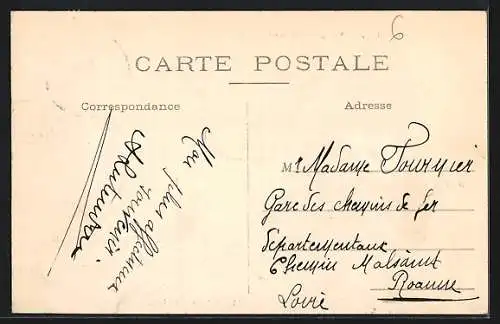 6
CARTE POSTALE
Correspondance
Adresse
Mon plus affectueux
souvenir.
Mr Madame Fournier
Gare des chemins de fer
départementaux
Chemin Malsaint
Roanne
Loire